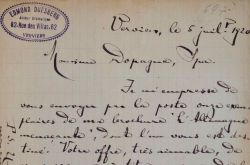 EDMOND DUESBERG
62-Rue des Villas-62
VERVIERS
Verviers, le 5 juil. 1920
Monsieur Dopagne, Spa.
Je m'empresse de
vous envoyer par la poste onze exem-
plaires de ma brochure l'Allemagne
menaçante, dont l'un vous est des-
tiné. Votre offre, très aimable, de